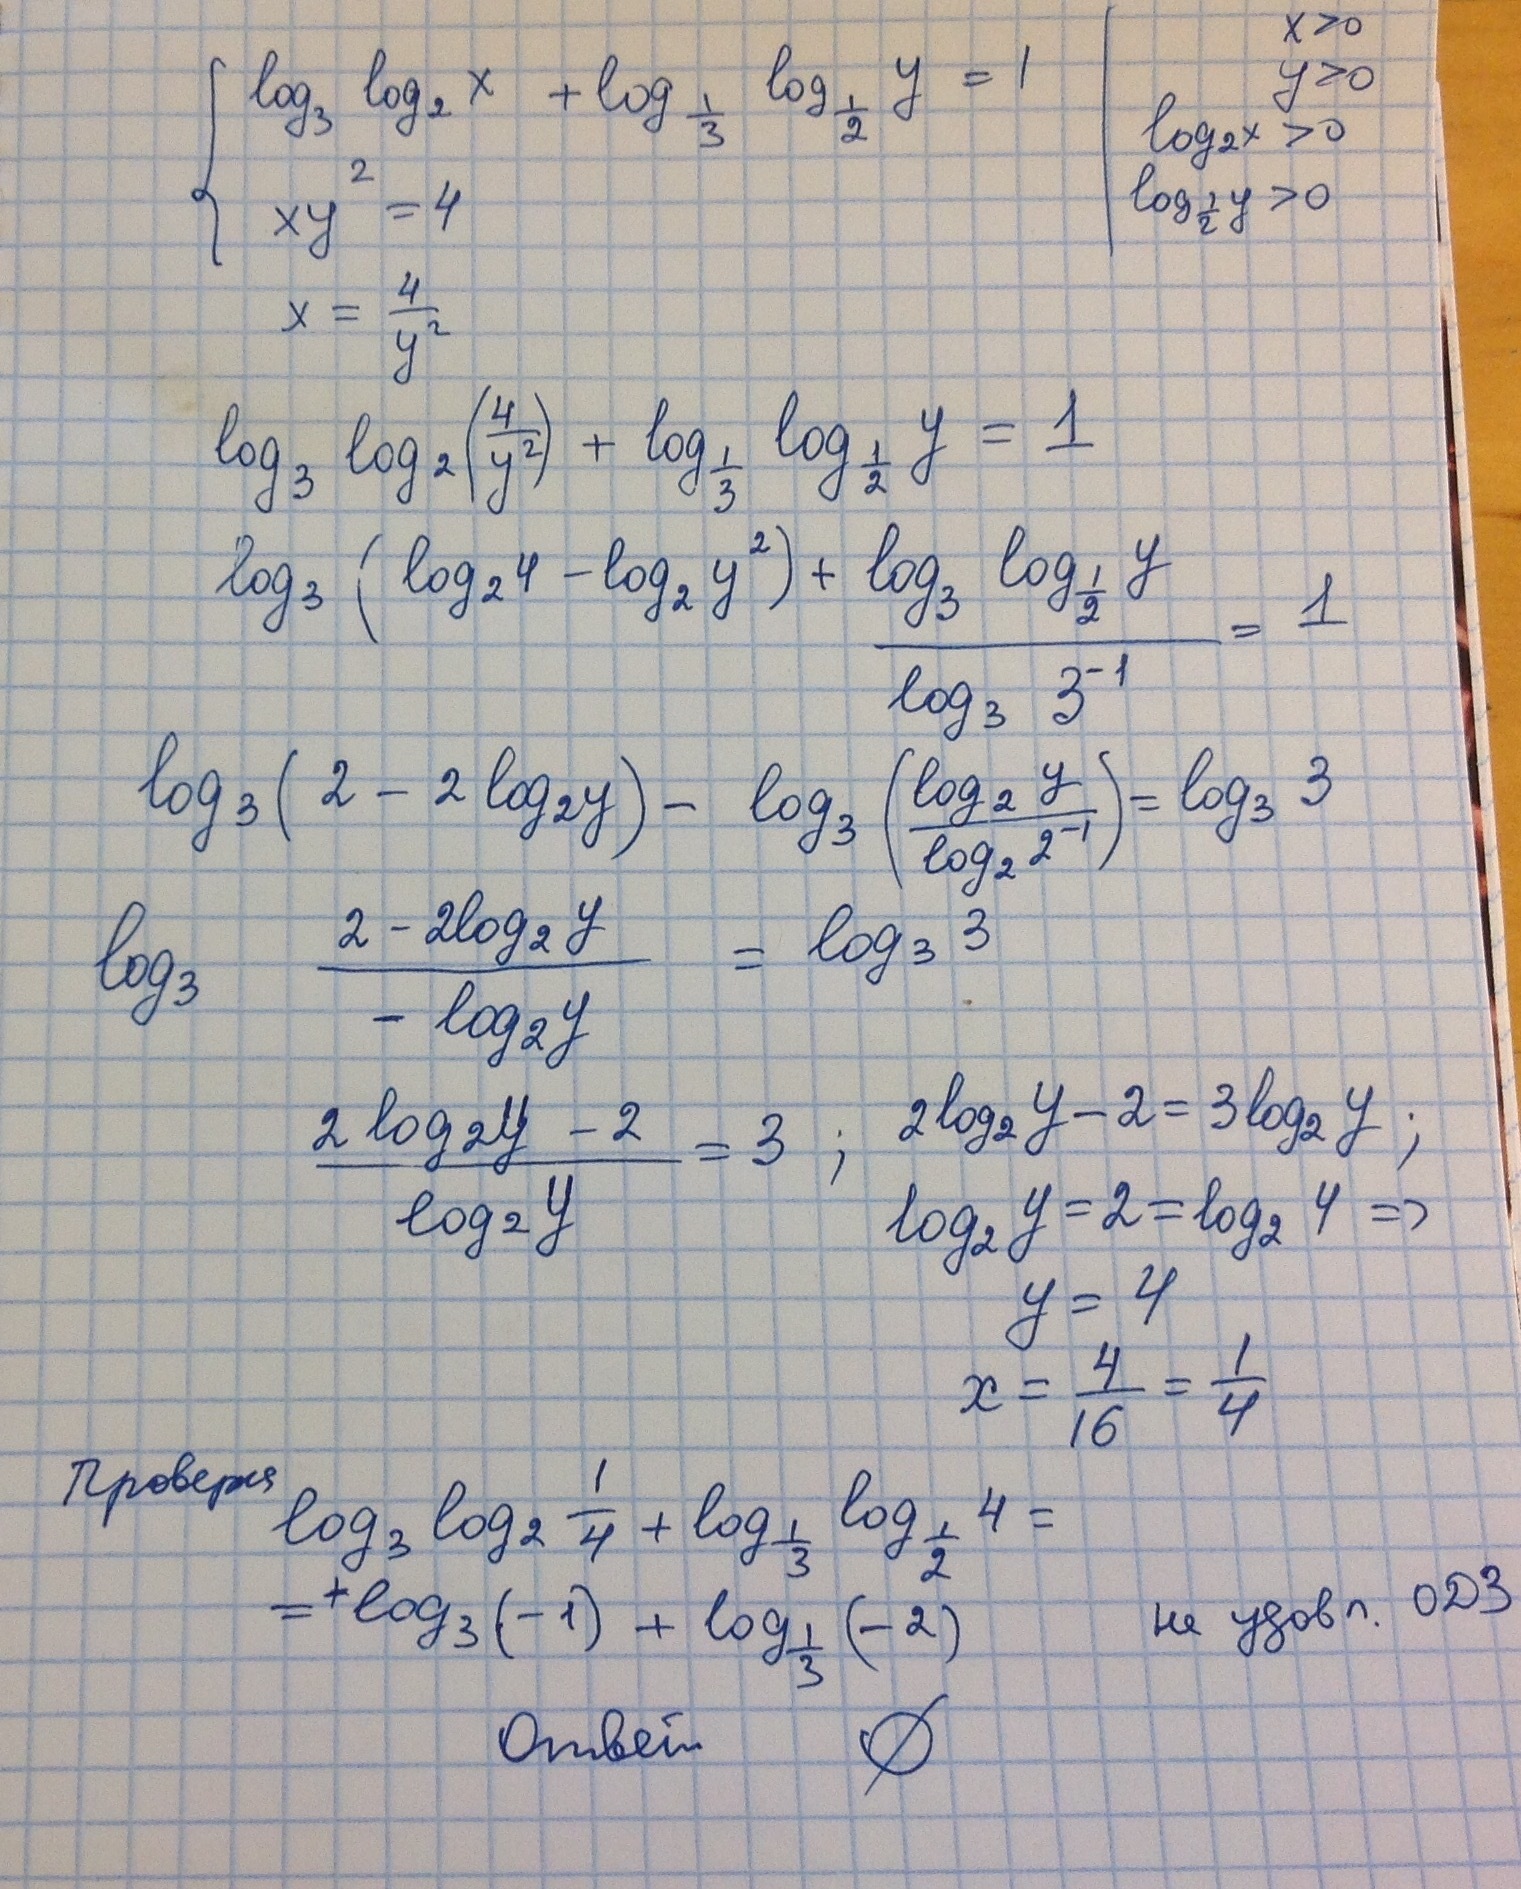 log₃ log₂ x + log_{1/3} log_{1/2} y = 1
xy² = 4
x > 0
y > 0
log₂x > 0
log_{1/2} y > 0
x = 4/y²
log₃ log₂ (4/y²) + log_{1/3} log_{1/2} y = 1
log₃ (log₂4 - log₂y²) + (log₃ log_{1/2} y)/(log₃ 3⁻¹) = 1
log₃ (2 - 2log₂y) - log₃ ((log₂ y)/(log₂ 2⁻¹)) = log₃ 3
log₃ (2 - 2log₂y)/(- log₂y) = log₃ 3
(2 log₂y - 2)/(log₂y) = 3 ; 2log₂y - 2 = 3log₂y ;
log₂y = 2 = log₂ 4 =>
y = 4
x = 4/16 = 1/4
Проверка
log₃ log₂ 1/4 + log_{1/3} log_{1/2} 4 =
= + log₃ (-1) + log_{1/3} (-2) не удовл. ОДЗ
Ответ ∅